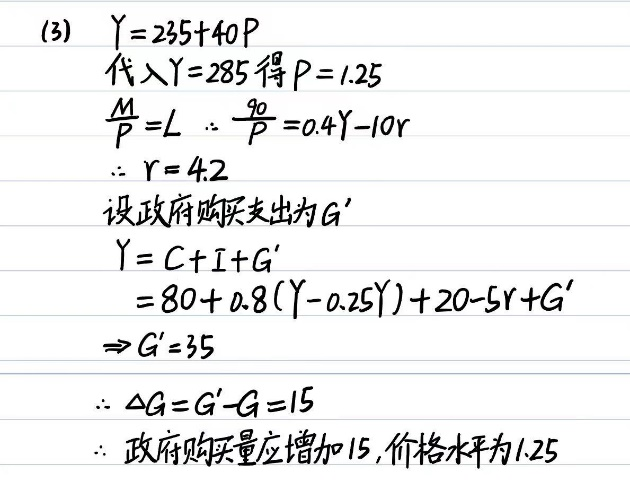 (3) Y=235+40P
代入Y=285得P=1.25
M/P=L ∴ 90/P=0.4Y-10r
∴ r=4.2
设政府购买支出为G'
Y=C+I+G'
=80+0.8(Y-0.25Y)+20-5r+G'
⇒G'=35
∴ △G=G'-G=15
∴ 政府购买量应增加15,价格水平为1.25